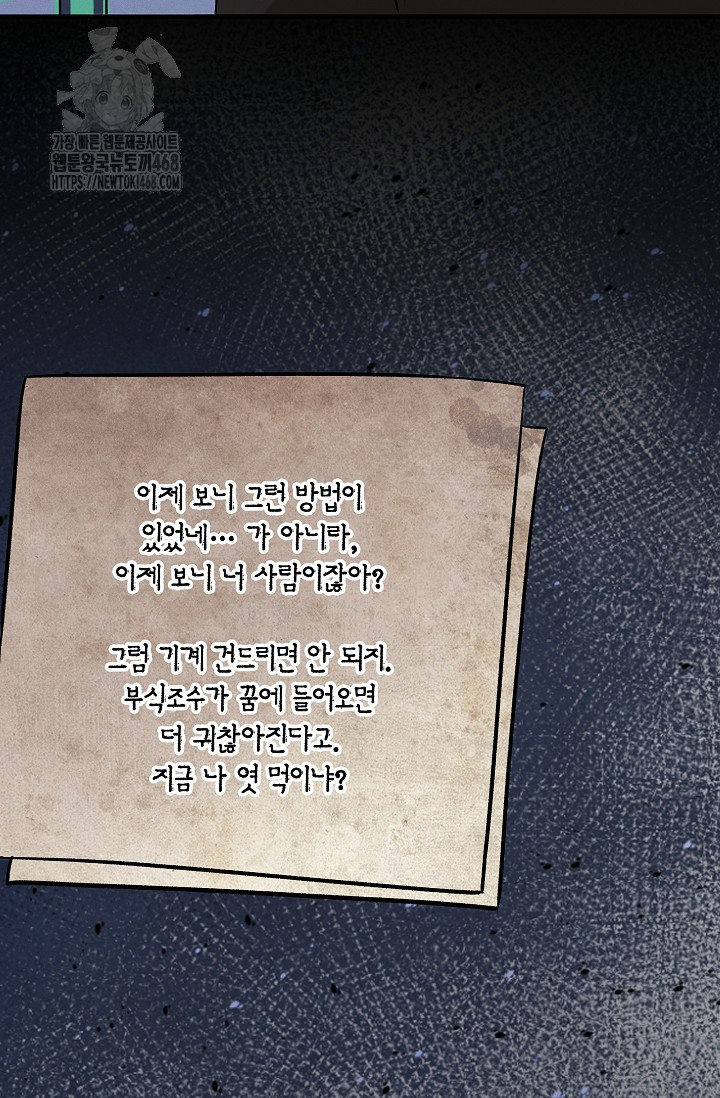 가장 빠른 웹툰제공사이트
웹툰왕국뉴토끼468
HTTPS://NEWTOKI468.COM
이제 보니 그런 방법이
있었네… 가 아니라,
이제 보니 너 사람이잖아?
그럼 기계 건드리면 안 되지.
부식조수가 꿈에 들어오면
더 귀찮아진다고.
지금 나 엿 먹이냐?